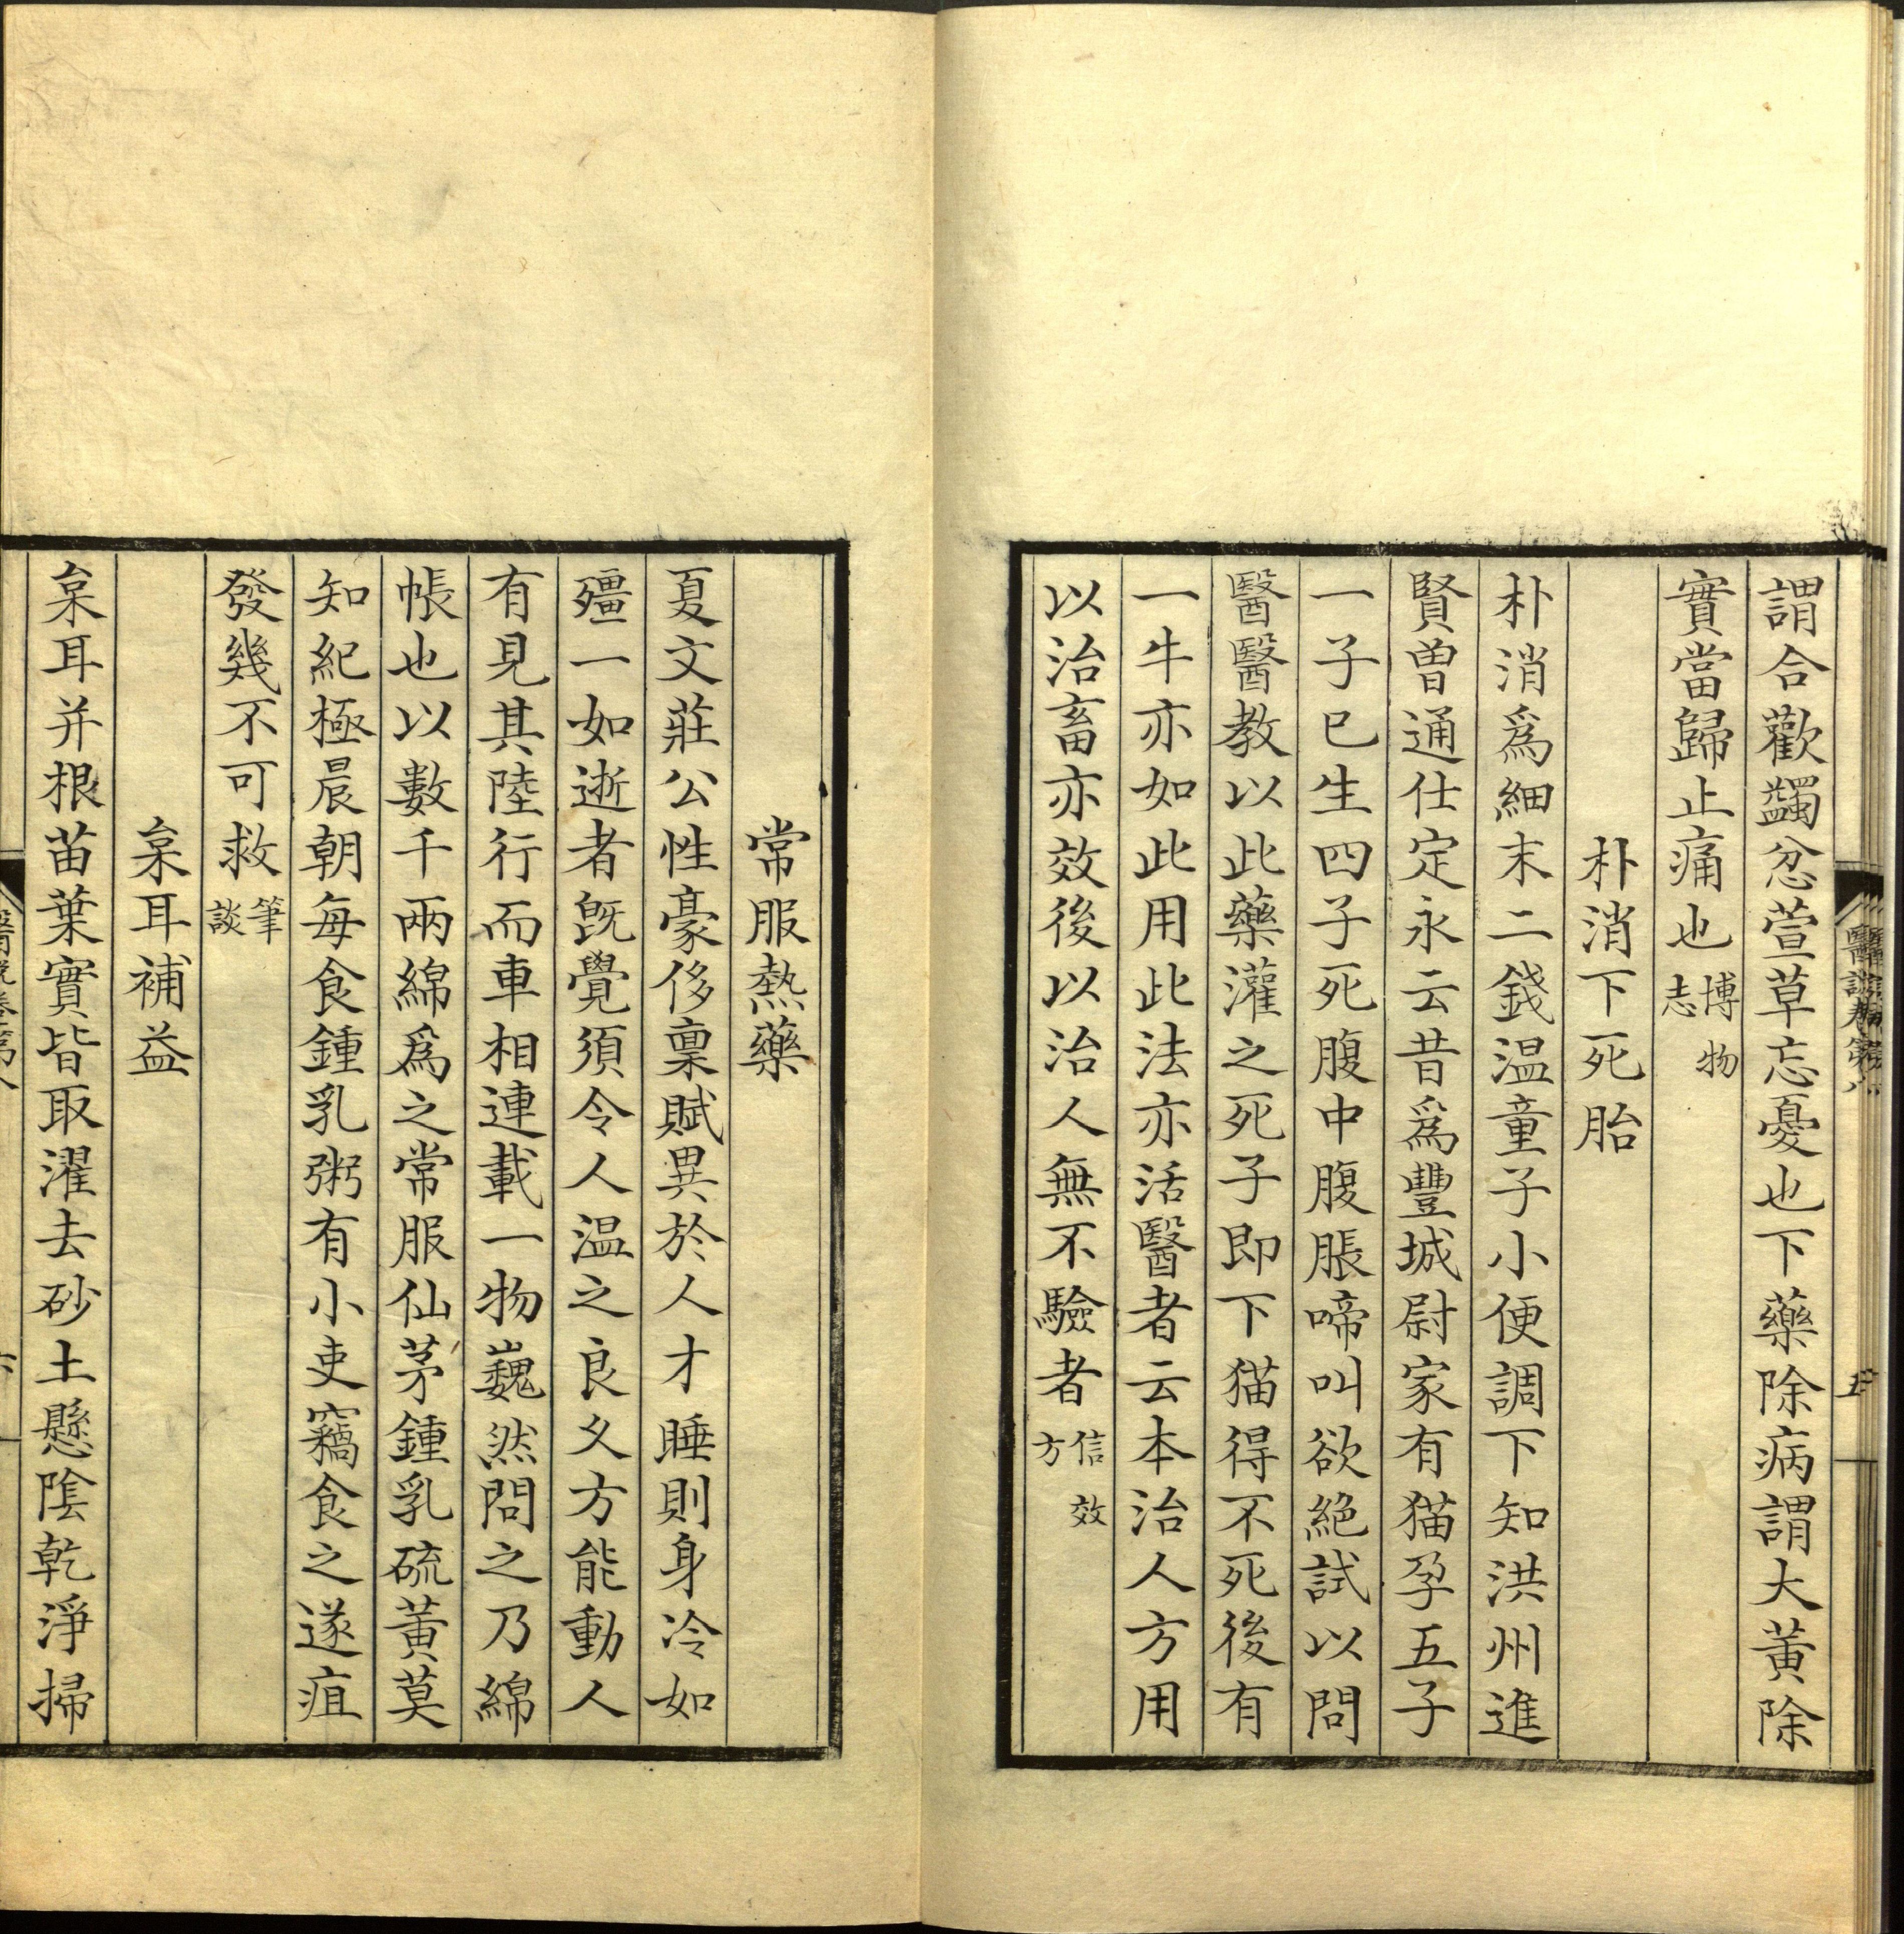 謂合歡蠲忿萱草忘憂也下藥除病謂大黃除
實當歸止痛也博物志
朴消下死胎
朴消爲細末二錢温童子小便調下知洪州進
賢曾通仕定永云昔爲豐城尉家有猫孕五子
一子已生四子死腹中腹脹啼叫欲絕試以問
醫醫教以此藥灌之死子即下猫得不死後有
一牛亦如此用此法亦活醫者云本治人方用
以治畜亦效後以治人無不驗者信效方
常服熱藥
夏文莊公性豪侈稟賦異於人才睡則身冷如
殭一如逝者旣覺須令人温之良久方能動人
有見其陸行而車相連載一物巍然問之乃綿
帳也以數千兩綿爲之常服仙茅鍾乳硫黃莫
知紀極晨朝每食鍾乳粥有小吏竊食之遂疽
發幾不可救筆談
枲耳補益
枲耳并根苗葉實皆取濯去砂土懸陰乾淨掃